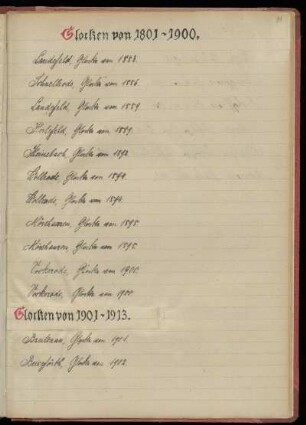 Glocken von 1801-1900.
Landefeld, Glocke von 1883.
Schnellrode, Glocke von 1886.
Landefeld, Glocke von 1889.
Glocke von 1889.
Glocke von 1893.
Vollrode, Glocke von 1894.
Glocke von 1894.
Mörshausen, Glocke von 1895.
Mörshausen, Glocke von 1895.
Vockerode, Glocke von 1900.
Vockerode, Glocke von 1900.
Glocken von 1901-1913.
Breitenau, Glocke von 1911.
Glocke von 1913.